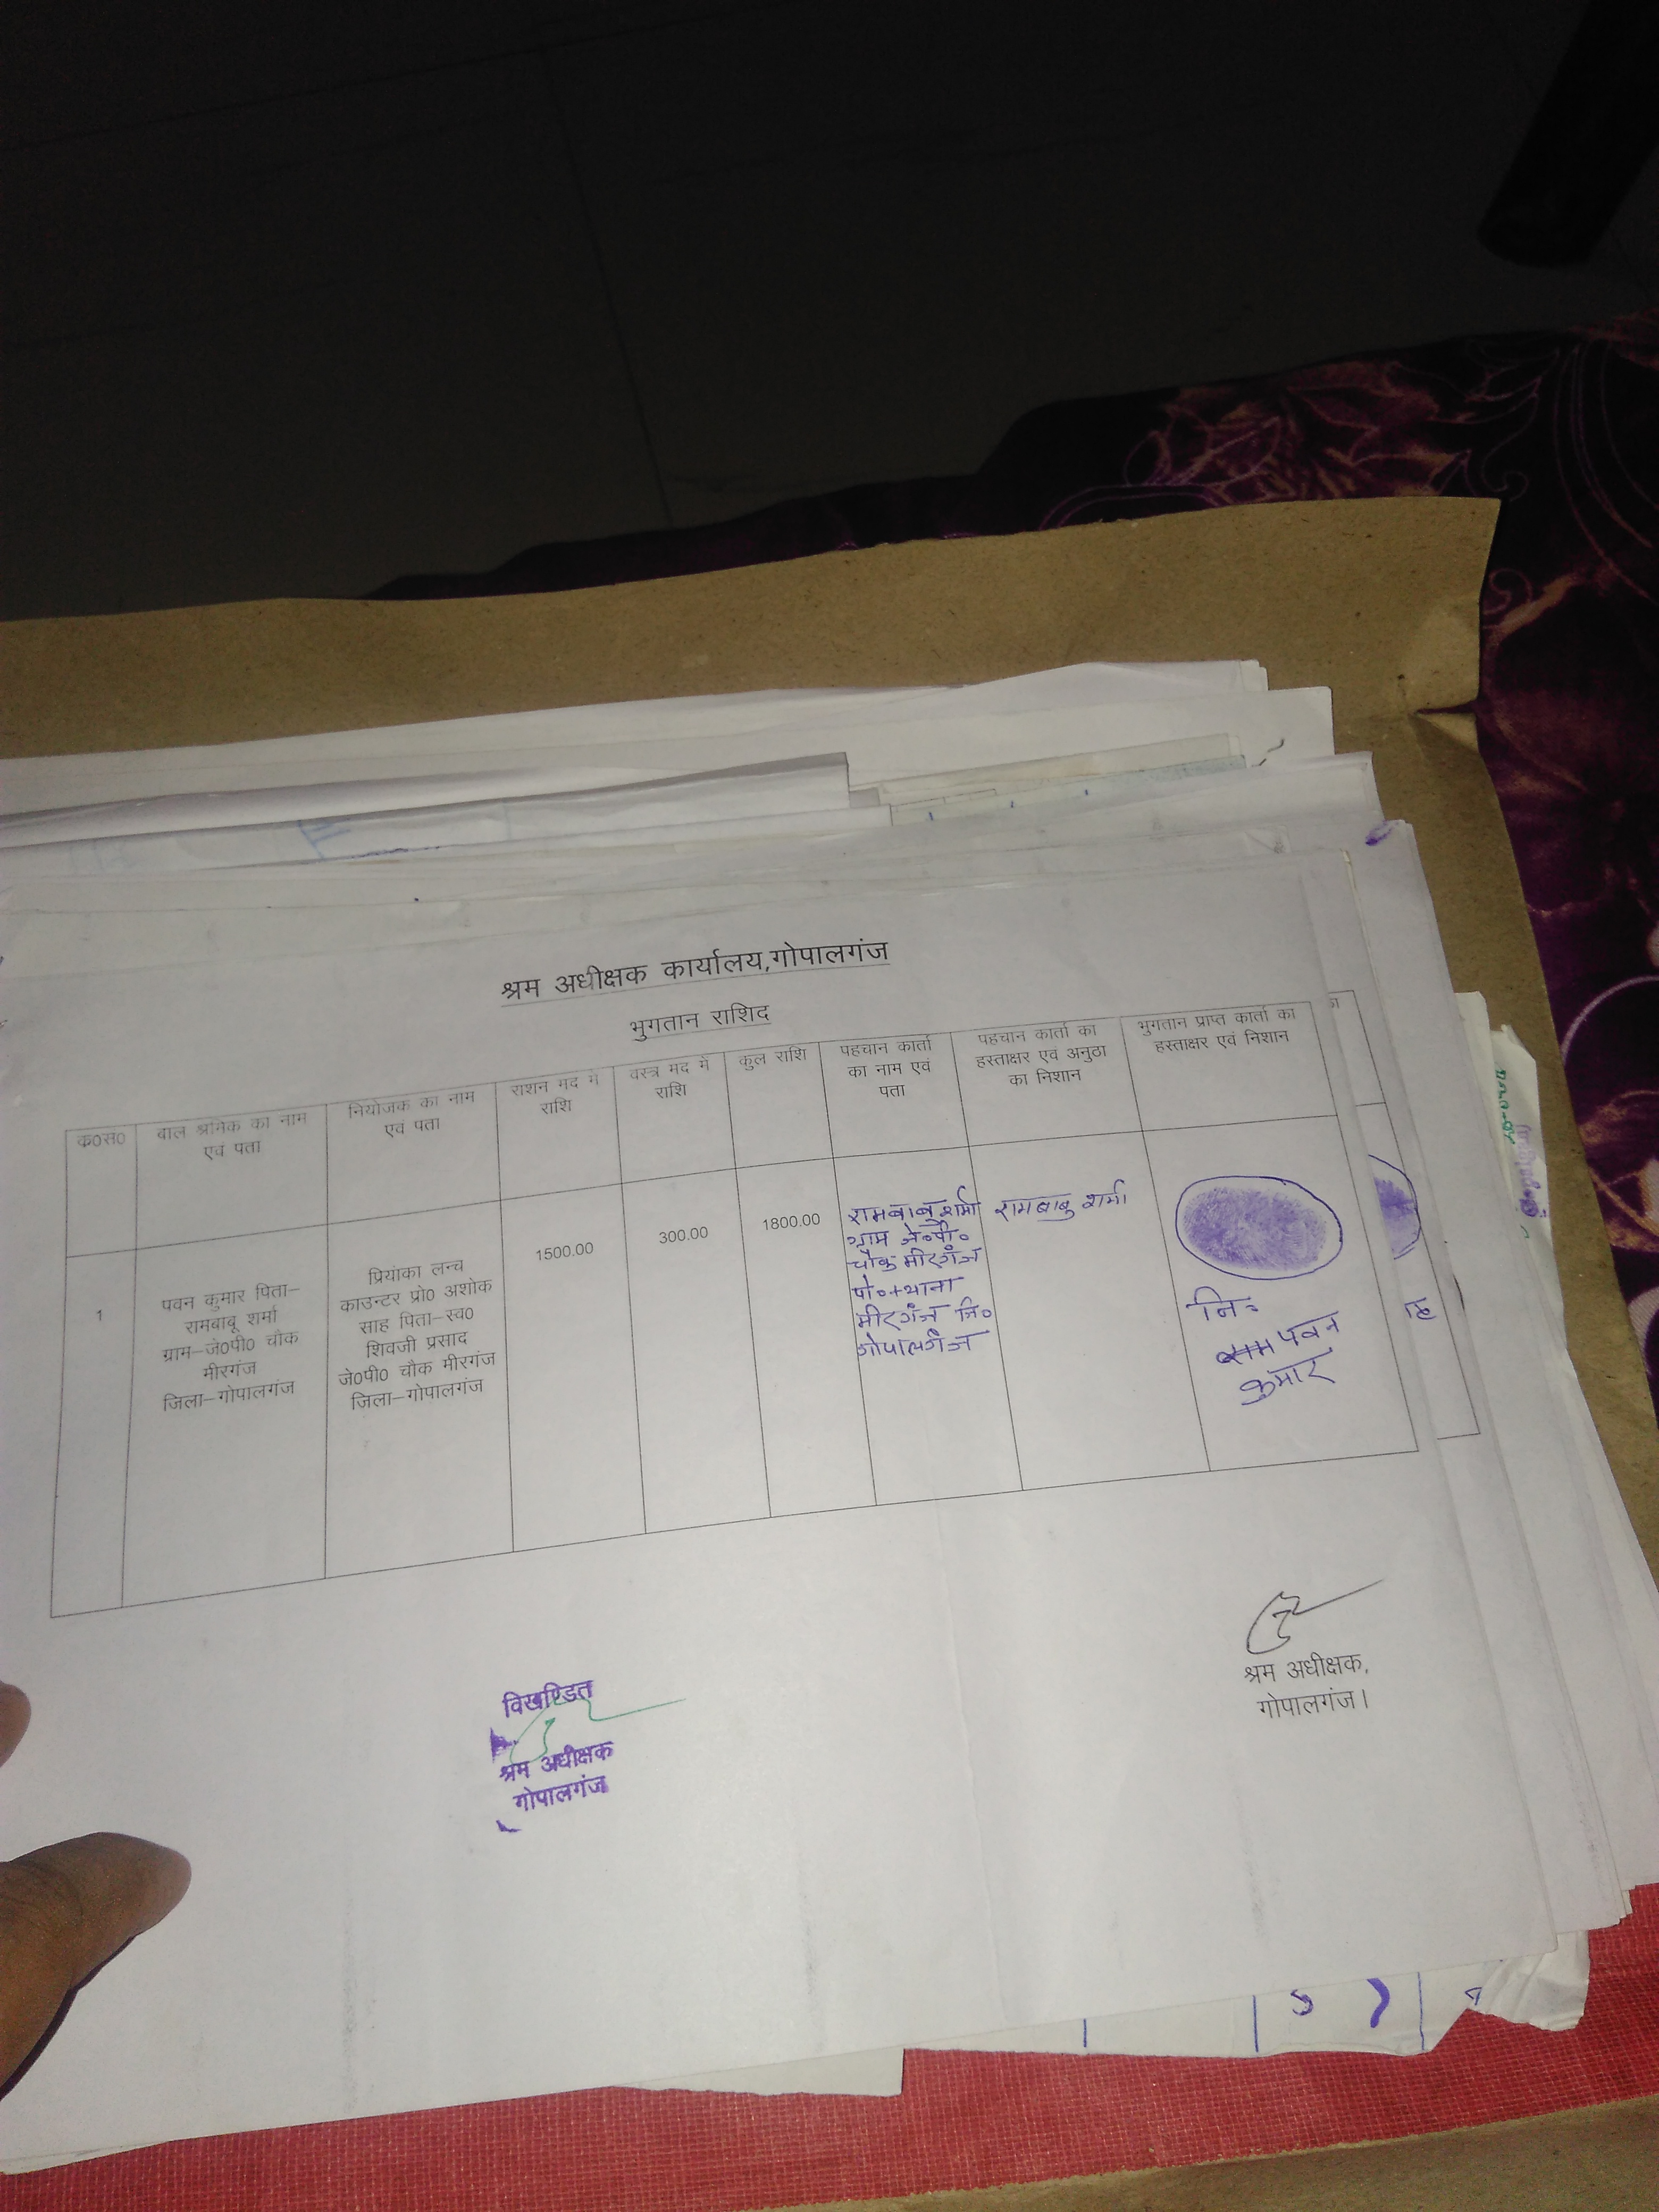 श्रम अधीक्षक कार्यालय,गोपालगंज
भुगतान राशिद
क०सं०
बाल श्रमिक का नाम
एवं पता
नियोजक का नाम
एवं पता
राशन मद में
राशि
वस्त्र मद में
राशि
कुल राशि
पहचान कार्ता
का नाम एवं
पता
पहचान कार्ता का
हस्ताक्षर एवं अनुठा
का निशान
भुगतान प्राप्त कार्ता का
हस्ताक्षर एवं निशान
1
पवन कुमार पिता–
रामबाबू शर्मा
ग्राम–जे०पी० चौक
मीरगंज
जिला–गोपालगंज
प्रियांका लन्च
काउन्टर प्रो० अशोक
साह पिता–स्व०
शिवजी प्रसाद
जे०पी० चौक मीरगंज
जिला–गोपालगंज
1500.00
300.00
1800.00
रामबाबु शर्मा
ग्राम जे०पी०
चौक मीरगंज
पो०+थाना
मीरगंज जि०
गोपालगंज
रामबाबु शर्मा
नि०
पवन
कुमार
श्रम अधीक्षक,
गोपालगंज।
विखण्डित
श्रम अधीक्षक
गोपालगंज